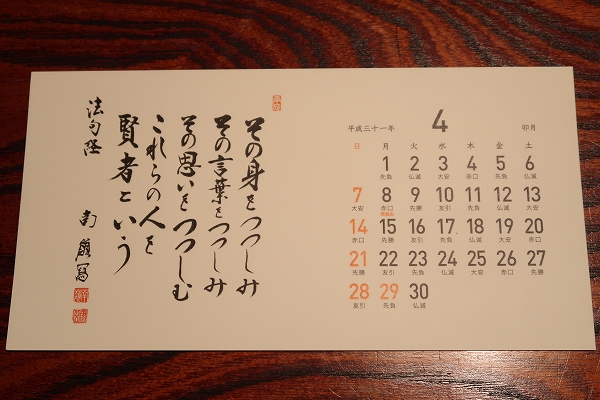 その身をつつしみ
その言葉をつつしみ
その思いをつつしむ
これらの人を
賢者という
法句経
南嶺寫
平成三十一年 4 卯月
日 月 火 水 木 金 土
1 2 3 4 5 6
先負 仏滅 大安 赤口 先負 仏滅
7 8 9 10 11 12 13
大安 赤口 先勝 友引 先負 仏滅 大安
降誕会
14 15 16 17 18 19 20
赤口 先勝 友引 先負 仏滅 大安 赤口
21 22 23 24 25 26 27
先勝 友引 先負 仏滅 大安 赤口 先勝
28 29 30
友引 先負 仏滅